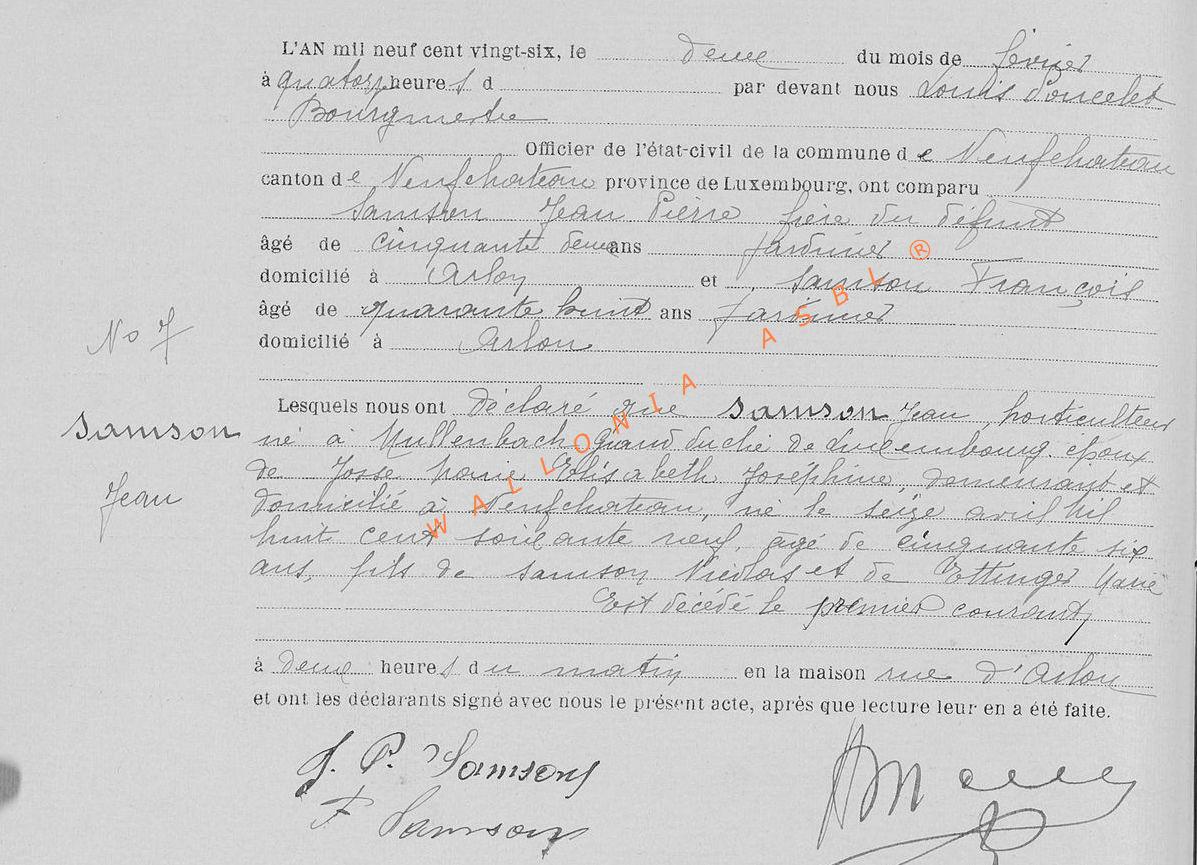 L'AN mil neuf cent vingt-six, le deux du mois de février
à quatorze heures d par devant nous Louis Poncelet
Bourgmestre
Officier de l'état-civil de la commune de Neufchateau
canton de Neufchateau province de Luxembourg, ont comparu
Samson Jean Pierre frère du défunt
âgé de cinquante deux ans jardinier
domicilié à Arlon et Samson François
âgé de quarante huit ans jardinier
domicilié à Arlon
No 7
Lesquels nous ont déclaré que Samson Jean, horticulteur
Samson
né à Mullenbach, Grand duché de Luxembourg, époux
de Josse Marie Elisabeth Joséphine, demeurant et
Jean
domicilié à Neufchateau, né le seize avril mil
huit cent soixante neuf, âgé de cinquante six
ans, fils de Samson Nicolas et de Ettinger Marie
Est décédé le premier courant,
à deux heures du matin en la maison rue d'Arlon
et ont les déclarants signé avec nous le présent acte, après que lecture leur en a été faite.
J. P. Samson
F Samson
WALLONIA ASBL ®